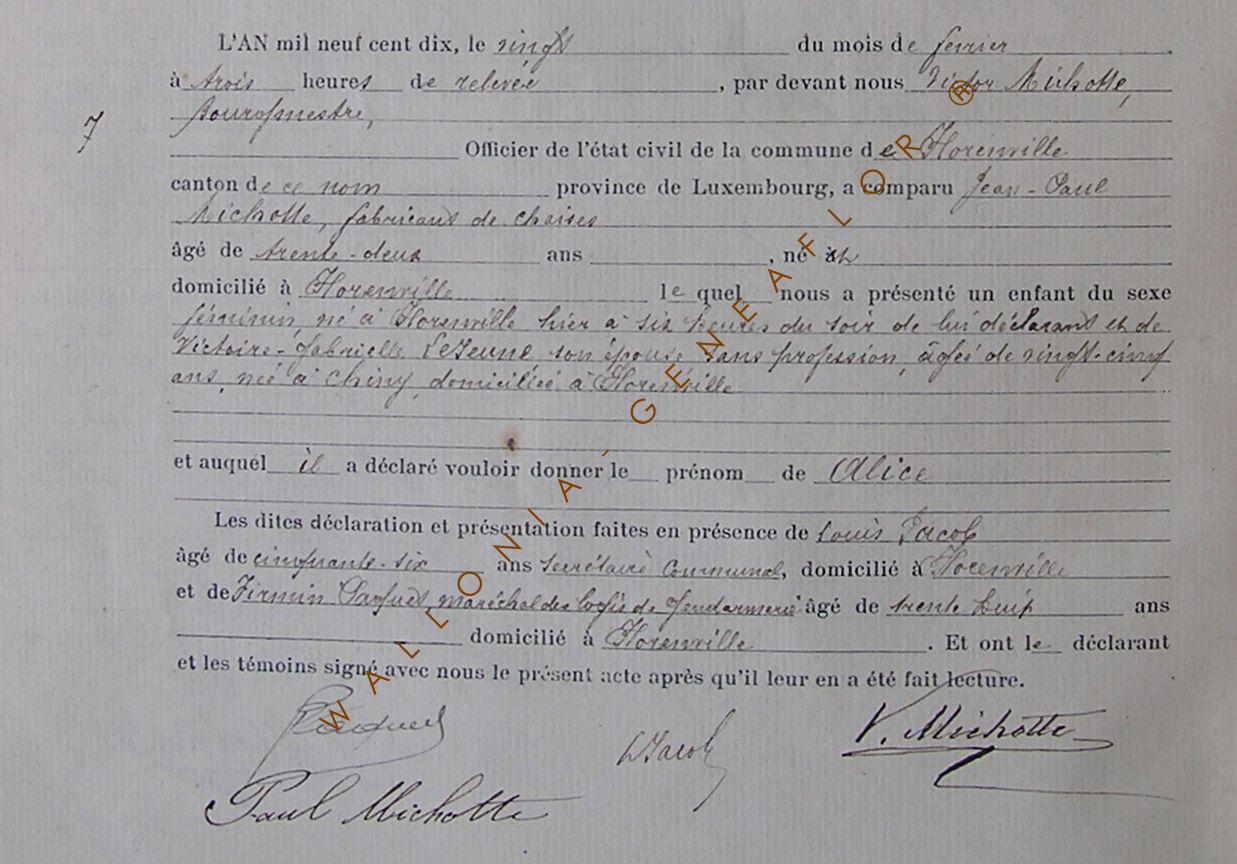 L'AN mil neuf cent dix, le vingt du mois de février
à trois heures de relevée, par devant nous Victor Michotte,
Bourgmestre,
7
Officier de l'état civil de la commune de Florenville
canton de ce nom province de Luxembourg, a comparu Jean-Paul
Michotte, fabricant de chaises
âgé de trente-deux ans, né à
domicilié à Florenville lequel nous a présenté un enfant du sexe
féminin, né à Florenville hier à six heures du soir de lui déclarant et de
Victoire-Gabrielle LeJeune son épouse sans profession, âgée de vingt-cinq
ans, née à Chiny, domiciliée à Florenville
et auquel il a déclaré vouloir donner le prénom de Alice
Les dites déclaration et présentation faites en présence de Louis Jacob
âgé de cinquante-six ans secrétaire communal, domicilié à Florenville
et de Firmin Jaques, maréchal des logis de Gendarmerie âgé de trente huit ans
domicilié à Florenville. Et ont le déclarant
et les témoins signé avec nous le présent acte après qu'il leur en a été fait lecture.
LJacob
V. Michotte
Paul Michotte
WALLONIA-GENEAFLOR ®